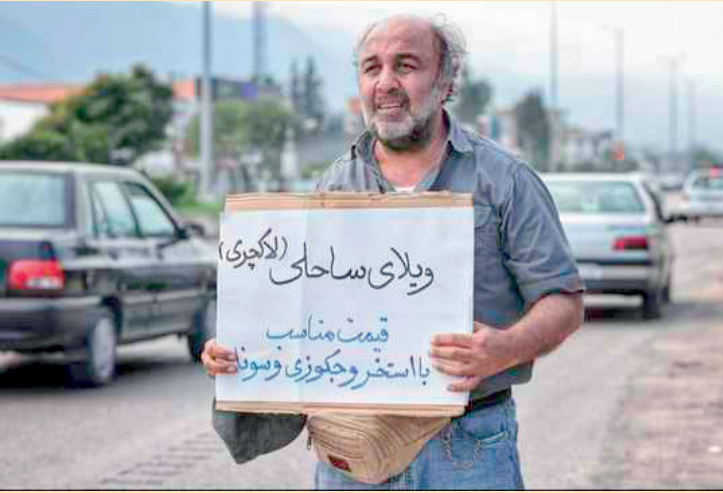 ویلای ساحلی (لاکچری)
قیمت مناسب
با استخر و جکوزی و سونا